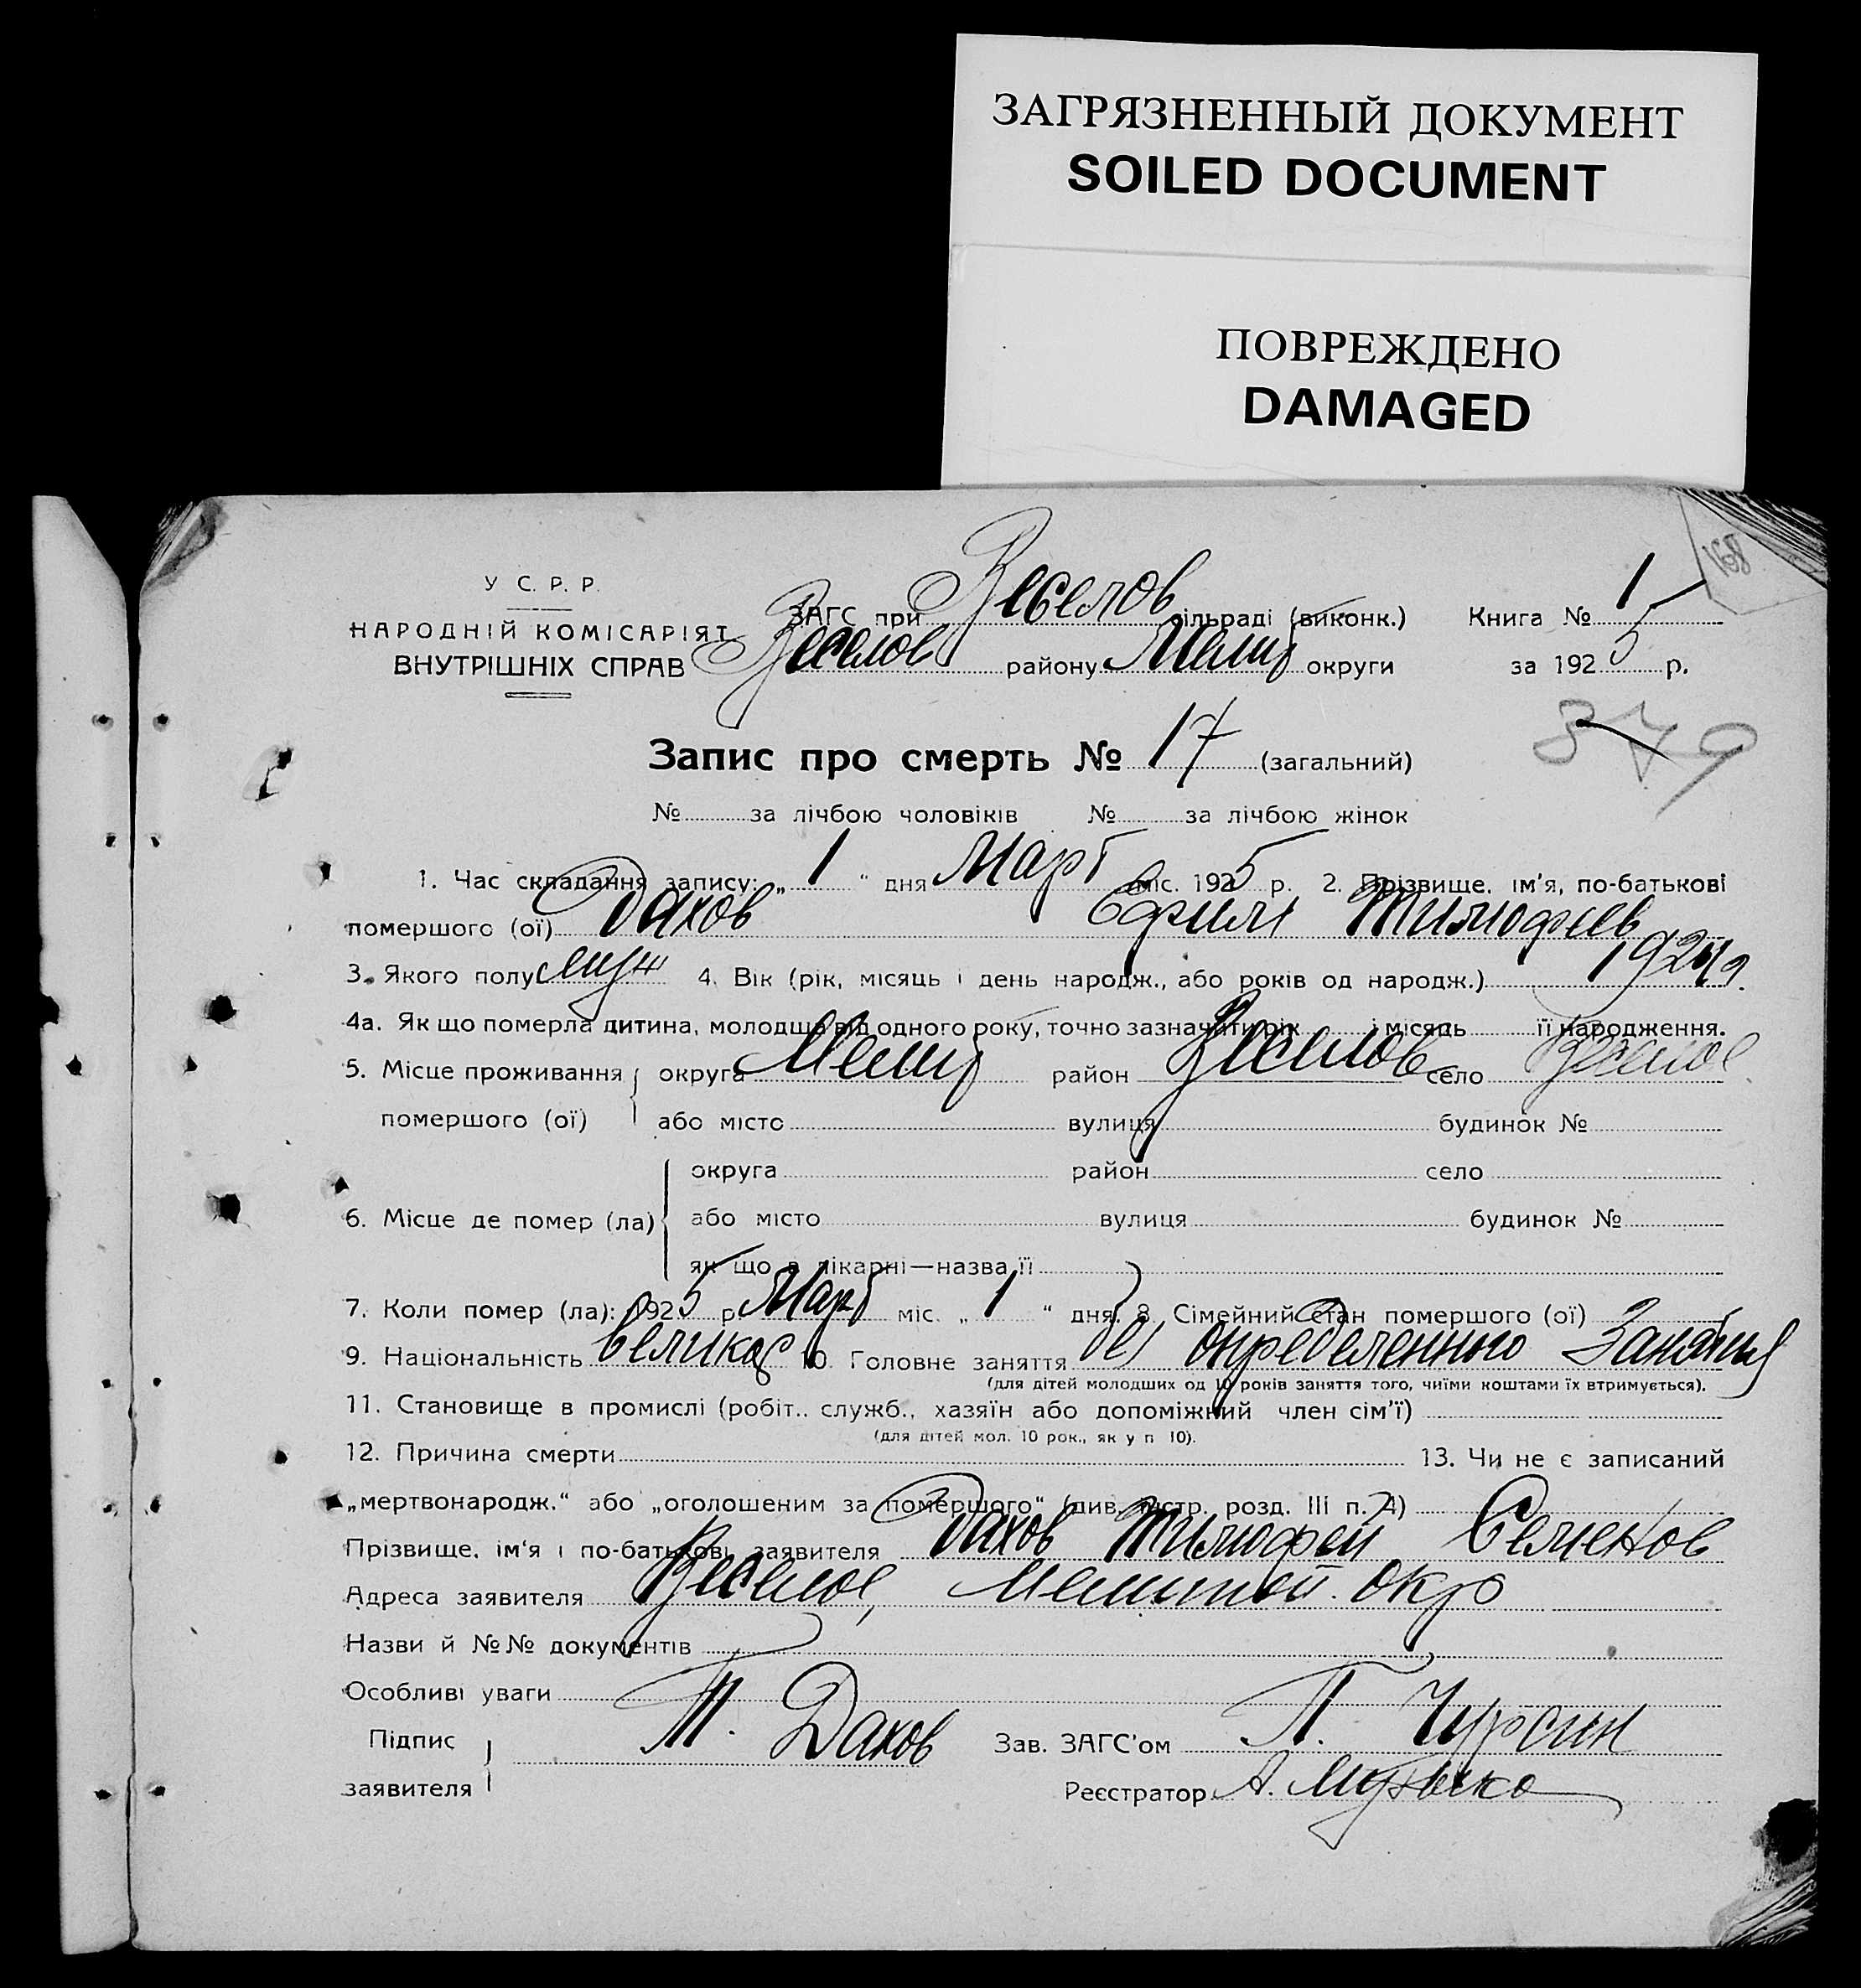 ЗАГРЯЗНЕННЫЙ ДОКУМЕНТ
SOILED DOCUMENT
ПОВРЕЖДЕНО
DAMAGED
168
У С. Р. Р.
НАРОДНІЙ КОМІСАРІЯТ
ВНУТРІШНІХ СПРАВ
ЗАГС при Веселов сільраді (виконк.) Книга № 1
Веселов району Мелит округи за 1925 р.
379
Запис про смерть № 17 (загальний)
№ за лічбою чоловіків № за лічбою жінок
1. Час складання запису: „ 1 “ дня Март міс. 1925 р. 2. Прізвище, ім'я, по-батькові
помершого (ої) Дахов Ефим Тимофеев
3. Якого полу муж 4. Вік (рік, місяць і день народж., або років од народж.) 1924 г.
4а. Як що померла дитина, молодша від одного року, точно зазначити рік і місяць її народження.
5. Місце проживання округа Мелит район Веселов село Веселое
помершого (ої) або місто вулиця будинок №
округа район село
6. Місце де помер (ла) або місто вулиця будинок №
як що в лікарні—назва її
7. Коли помер (ла): 1925 р. Март міс. „ 1 “ дня. 8. Сімейний стан помершого (ої)
9. Національність великор 10. Головне заняття без определенного Занятия
(для дітей молодших од 10 років заняття того, чиїми коштами їх втримується).
11. Становище в промислі (робіт., служб., хазяїн або допоміжний член сім'ї)
(для дітей мол. 10 рок., як у п 10).
12. Причина смерти 13. Чи не є записаний
„мертвонародж.“ або „оголошеним за помершого“ (див. інстр. розд. III п. 4)
Прізвище, ім'я і по-батькові заявителя Дахов Тимофей Семенов
Адреса заявителя Веселое, Мелитоп. окр
Назви й №№ документів
Особливі уваги
Підпис заявителя Т. Дахов Зав. ЗАГС'ом П. Чурсин
Реєстратор А. Музыка